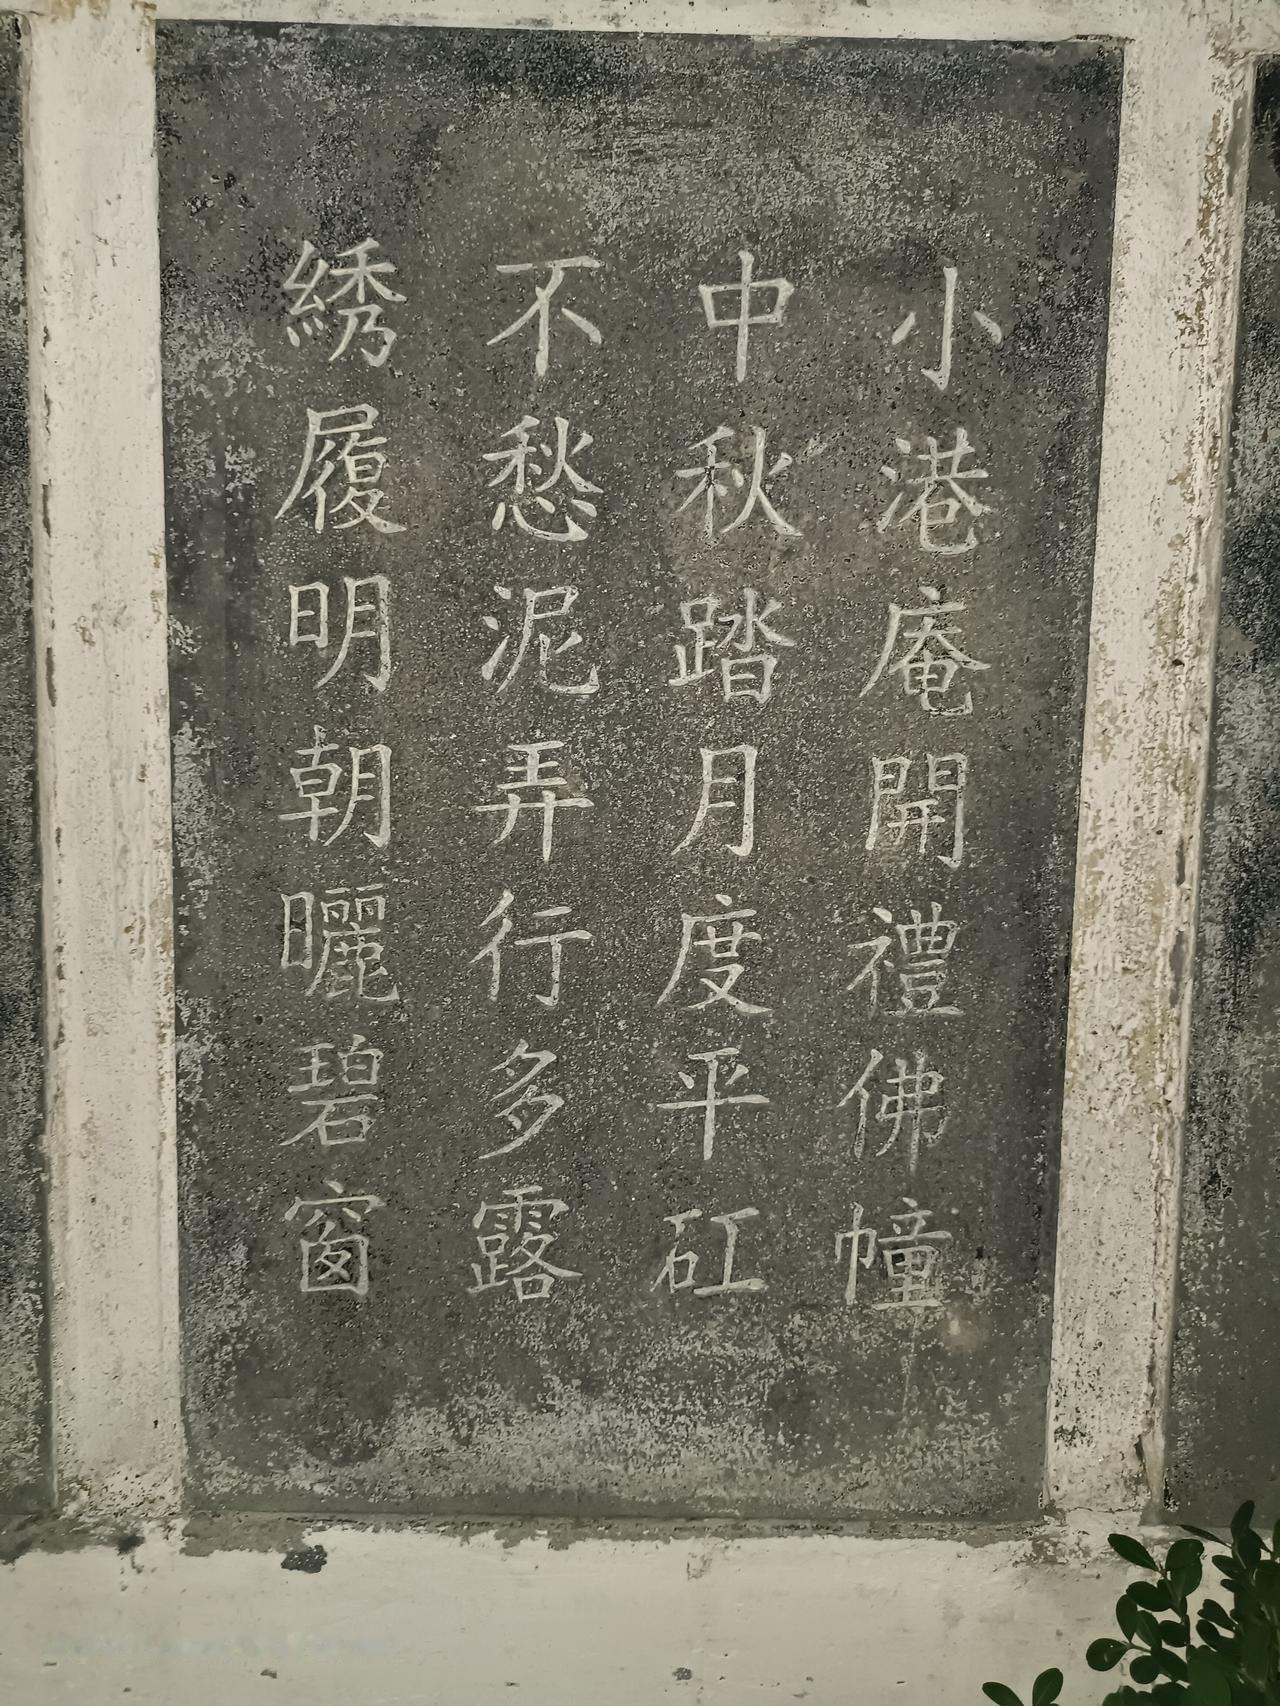 小港庵開禮佛幢
中秋踏月度平矼
不愁泥弄行多露
綉履明朝曬碧窗